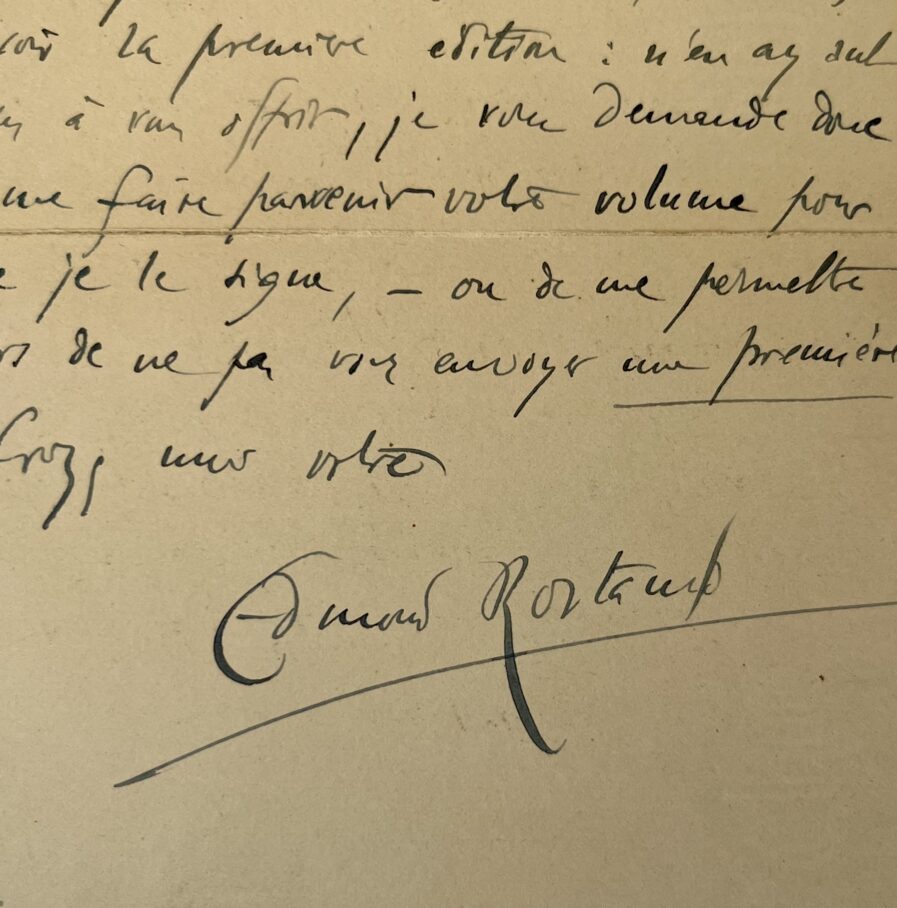 la première édition : n'en ay
à vous offrir, je vous demande donc
me faire parvenir votre volume pour
je le signe, – ou de me permettre
de ne pas vous envoyer une première
votre
Edmond Rostand